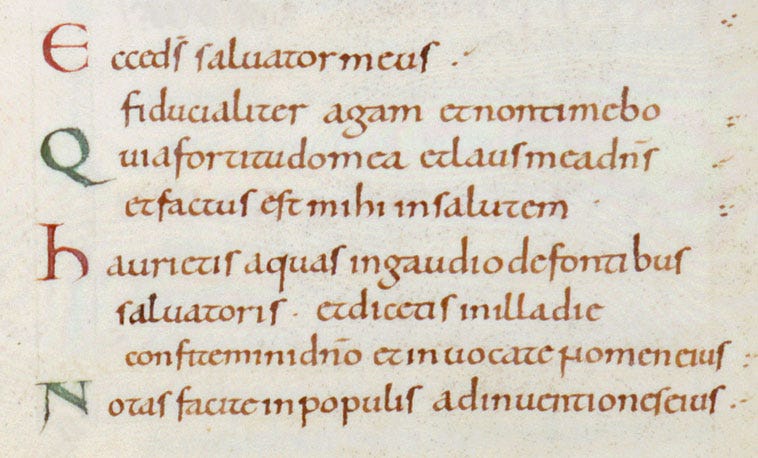 Ecce ds̄ salvator meus ·
fiducialiter agam et non timebo
Quia fortitudo mea et laus mea dn̄s
et factus est mihi in salutem ·
haurietis aquas in gaudio de fontibus
salvatoris · et dicetis in illa die
confitemini dn̄o et invocate nomen eius
Notas facite in populis adinventiones eius ·